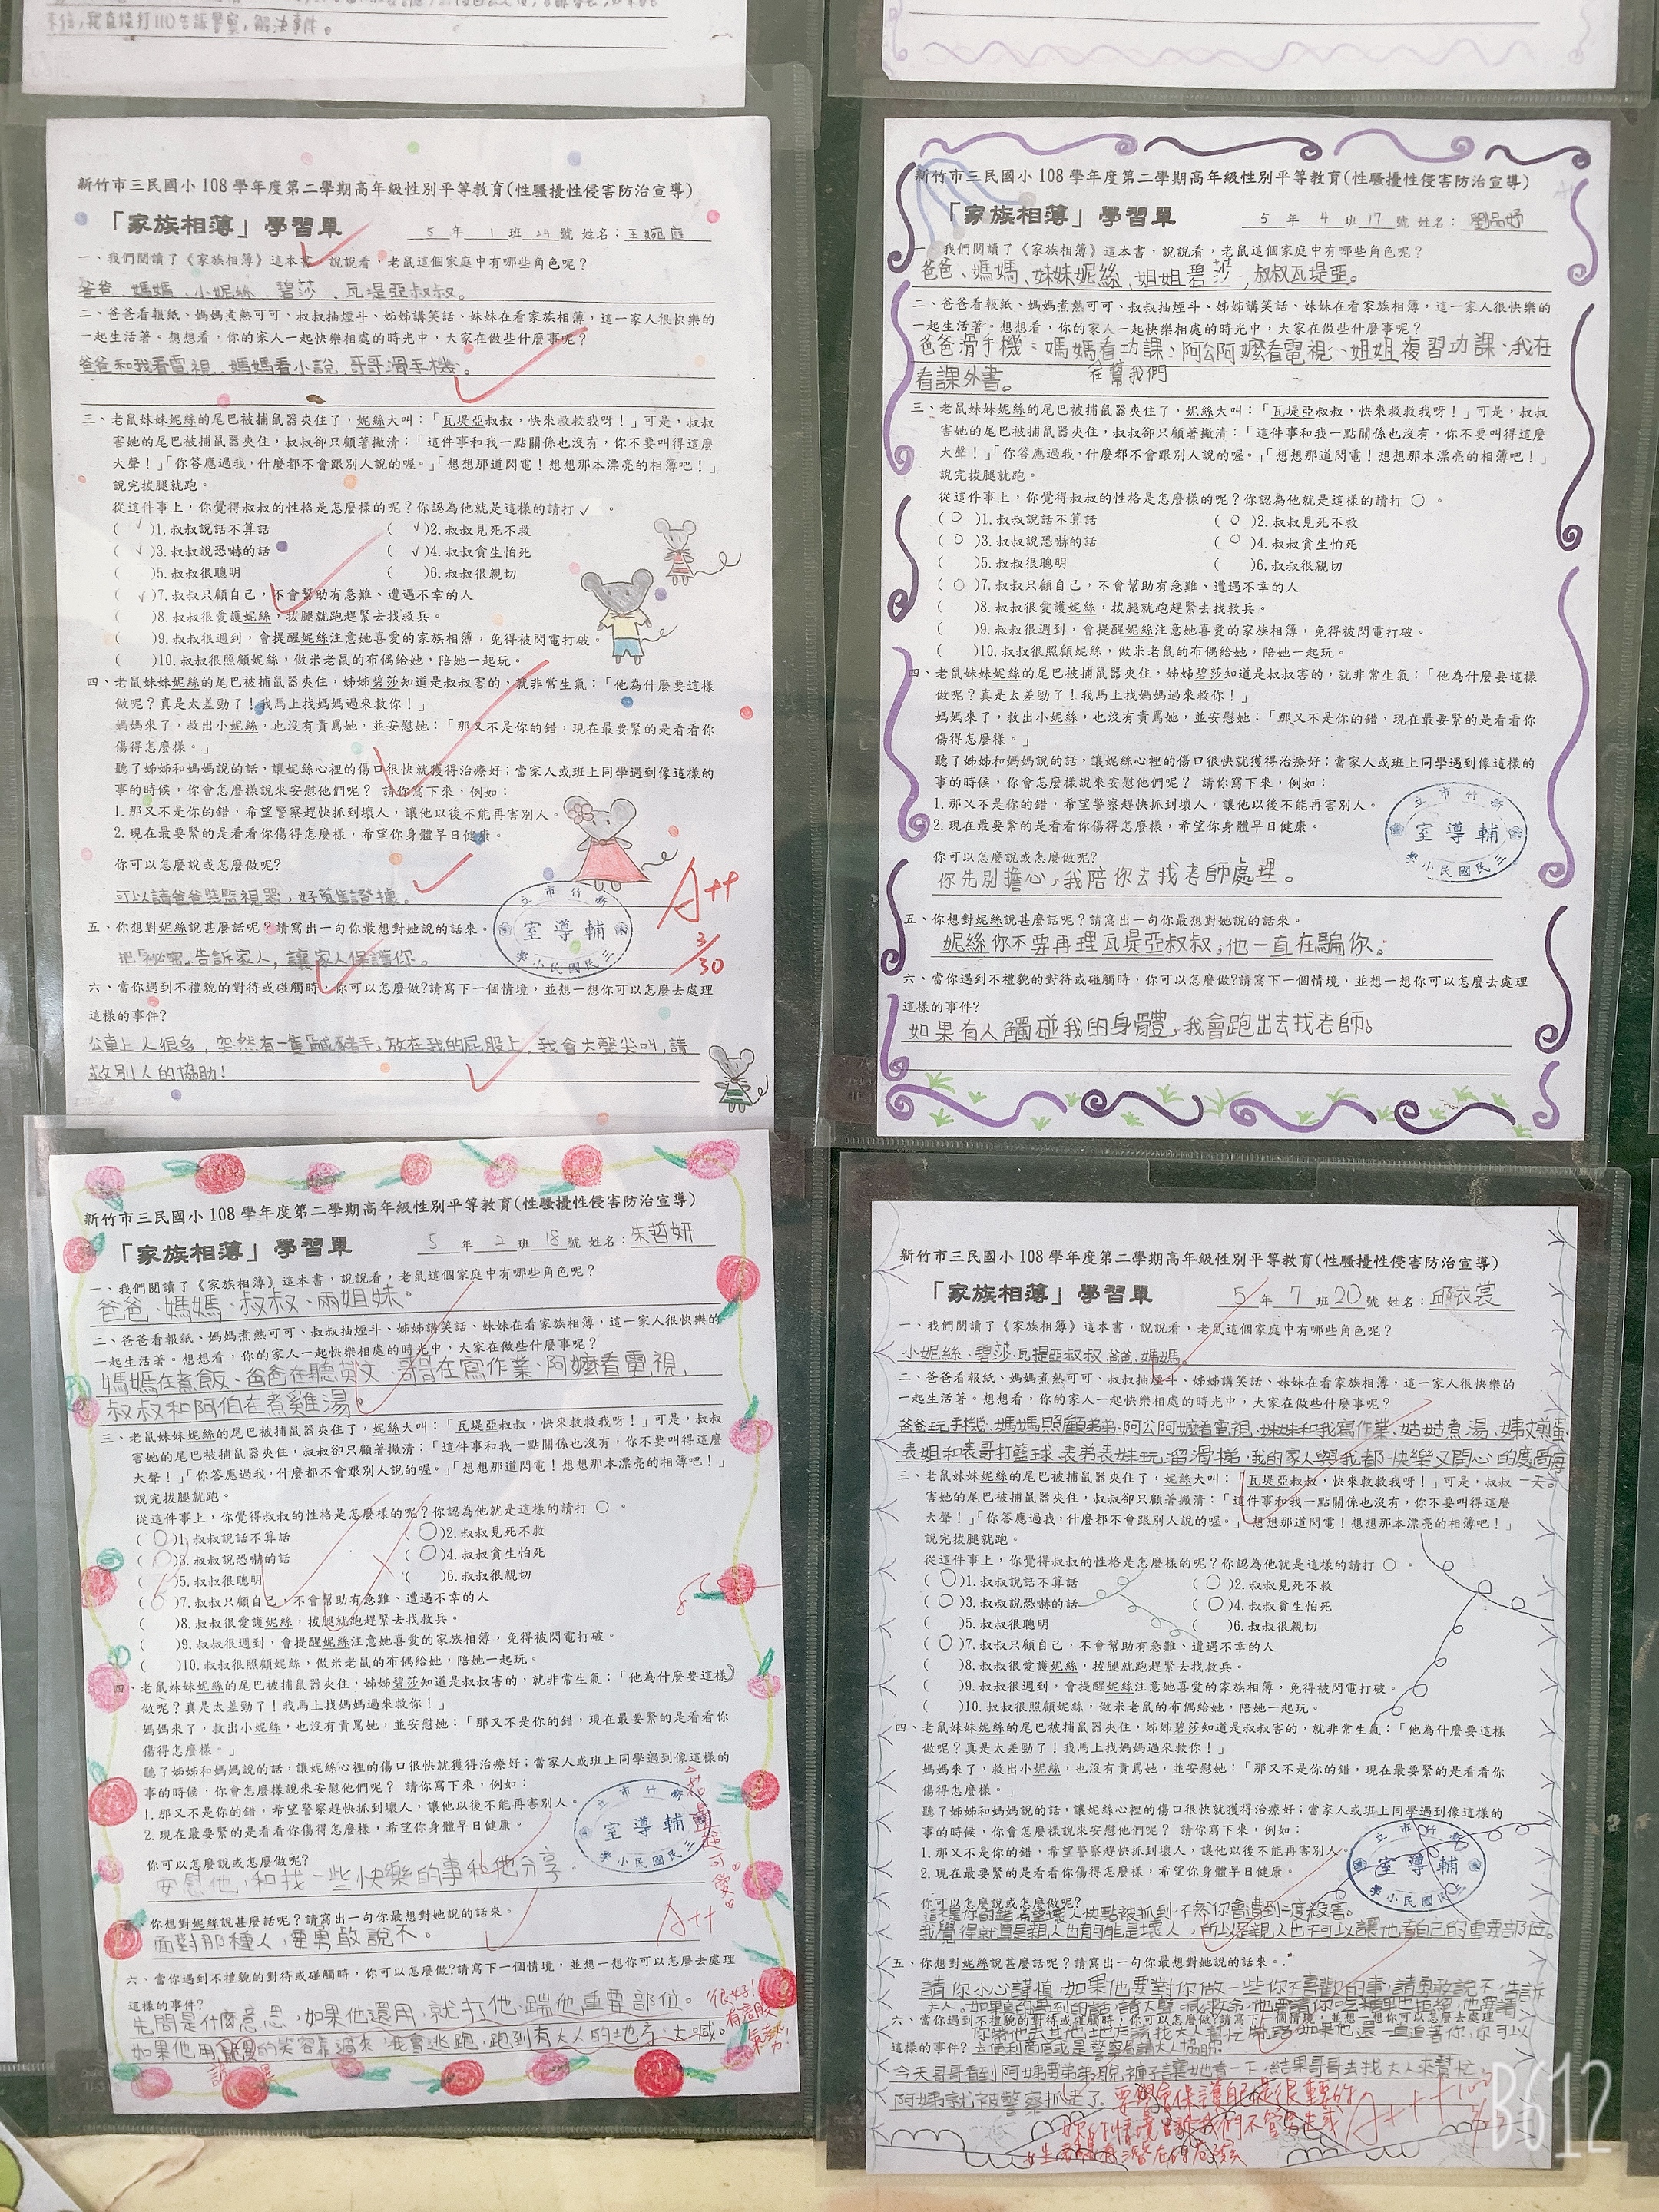 來信，我直接打110告訴警察，解決事件。
新竹市三民國小108學年度第二學期高年級性別平等教育(性騷擾性侵害防治宣導)
「家族相薄」學習單 5年1班24號 姓名：王婉庭
一、我們閱讀了《家族相薄》這本書，說說看，老鼠這個家庭中有哪些角色呢？
爸爸、媽媽、小妮絲、碧莎、瓦堤亞叔叔。
二、爸爸看報紙、媽媽煮熱可可、叔叔抽煙斗、姊姊講笑話、妹妹在看家族相薄，這一家人很快樂的
一起生活著。想想看，你的家人一起快樂相處的時光中，大家在做些什麼事呢？
爸爸和我看電視、媽媽看小說、哥哥滑手機。
三、老鼠妹妹妮絲的尾巴被捕鼠器夾住了，妮絲大叫：「瓦堤亞叔叔，快來救救我呀！」可是，叔叔
害她的尾巴被捕鼠器夾住，叔叔卻只顧著撇清：「這件事和我一點關係也沒有，你不要叫得這麼
大聲！」「你答應過我，什麼都不會跟別人說的喔。」「想想那道閃電！想想那本漂亮的相薄吧！」
說完拔腿就跑。
從這件事上，你覺得叔叔的性格是怎麼樣的呢？你認為他就是這樣的請打✓。
(✓)1.叔叔說話不算話 (✓)2.叔叔見死不救
(✓)3.叔叔說恐嚇的話 (✓)4.叔叔貪生怕死
( )5.叔叔很聰明 ( )6.叔叔很親切
(✓)7.叔叔只顧自己，不會幫助有急難、遭遇不幸的人
( )8.叔叔很愛護妮絲，拔腿就跑趕緊去找救兵。
( )9.叔叔很週到，會提醒妮絲注意她喜愛的家族相薄，免得被閃電打破。
( )10.叔叔很照顧妮絲，做米老鼠的布偶給她，陪她一起玩。
四、老鼠妹妹妮絲的尾巴被捕鼠器夾住，姊姊碧莎知道是叔叔害的，就非常生氣：「他為什麼要這樣
做呢？真是太差勁了！我馬上找媽媽過來救你！」
媽媽來了，救出小妮絲，也沒有責罵她，並安慰她：「那又不是你的錯，現在最要緊的是看看你
傷得怎麼樣。」
聽了姊姊和媽媽說的話，讓妮絲心裡的傷口很快就獲得治療好；當家人或班上同學遇到像這樣的
事的時候，你會怎麼樣說來安慰他們呢？ 請你寫下來，例如：
1.那又不是你的錯，希望警察趕快抓到壞人，讓他以後不能再害別人。
2.現在最要緊的是看看你傷得怎麼樣，希望你身體早日健康。
你可以怎麼說或怎麼做呢？
可以請爸爸裝監視器，好蒐集證據。
A++
3/30
新竹市立三民國民小學
輔導室
五、你想對妮絲說甚麼話呢？請寫出一句你最想對她說的話來。
把「秘密」告訴家人，讓家人保護你。
六、當你遇到不禮貌的對待或碰觸時，你可以怎麼做？請寫下一個情境，並想一想你可以怎麼去處理
這樣的事件？
公車上人很多，突然有一隻「鹹豬手」放在我的屁股上，我會大聲尖叫，請
求別人的協助！
新竹市三民國小108學年度第二學期高年級性別平等教育(性騷擾性侵害防治宣導)
「家族相薄」學習單 5年4班17號 姓名：劉品妤
一、我們閱讀了《家族相薄》這本書，說說看，老鼠這個家庭中有哪些角色呢？
爸爸、媽媽、妹妹妮絲、姐姐碧莎、叔叔瓦堤亞。
二、爸爸看報紙、媽媽煮熱可可、叔叔抽煙斗、姊姊講笑話、妹妹在看家族相薄，這一家人很快樂的
一起生活著。想想看，你的家人一起快樂相處的時光中，大家在做些什麼事呢？
爸爸滑手機、媽媽看功課、阿公阿嬤看電視、姐姐複習功課、我在
看課外書。 在幫我們
三、老鼠妹妹妮絲的尾巴被捕鼠器夾住了，妮絲大叫：「瓦堤亞叔叔，快來救救我呀！」可是，叔叔
害她的尾巴被捕鼠器夾住，叔叔卻只顧著撇清：「這件事和我一點關係也沒有，你不要叫得這麼
大聲！」「你答應過我，什麼都不會跟別人說的喔。」「想想那道閃電！想想那本漂亮的相薄吧！」
說完拔腿就跑。
從這件事上，你覺得叔叔的性格是怎麼樣的呢？你認為他就是這樣的請打○。
(○)1.叔叔說話不算話 (○)2.叔叔見死不救
(○)3.叔叔說恐嚇的話 (○)4.叔叔貪生怕死
( )5.叔叔很聰明 ( )6.叔叔很親切
(○)7.叔叔只顧自己，不會幫助有急難、遭遇不幸的人
( )8.叔叔很愛護妮絲，拔腿就跑趕緊去找救兵。
( )9.叔叔很週到，會提醒妮絲注意她喜愛的家族相薄，免得被閃電打破。
( )10.叔叔很照顧妮絲，做米老鼠的布偶給她，陪她一起玩。
四、老鼠妹妹妮絲的尾巴被捕鼠器夾住，姊姊碧莎知道是叔叔害的，就非常生氣：「他為什麼要這樣
做呢？真是太差勁了！我馬上找媽媽過來救你！」
媽媽來了，救出小妮絲，也沒有責罵她，並安慰她：「那又不是你的錯，現在最要緊的是看看你
傷得怎麼樣。」
聽了姊姊和媽媽說的話，讓妮絲心裡的傷口很快就獲得治療好；當家人或班上同學遇到像這樣的
事的時候，你會怎麼樣說來安慰他們呢？ 請你寫下來，例如：
1.那又不是你的錯，希望警察趕快抓到壞人，讓他以後不能再害別人。
2.現在最要緊的是看看你傷得怎麼樣，希望你身體早日健康。
新竹市立三民國民小學
輔導室
你可以怎麼說或怎麼做呢？
你先別擔心，我陪你去找老師處理。
五、你想對妮絲說甚麼話呢？請寫出一句你最想對她說的話來。
妮絲你不要再理瓦堤亞叔叔，他一直在騙你。
六、當你遇到不禮貌的對待或碰觸時，你可以怎麼做？請寫下一個情境，並想一想你可以怎麼去處理
這樣的事件？
如果有人觸碰我的身體，我會跑出去找老師。
新竹市三民國小108學年度第二學期高年級性別平等教育(性騷擾性侵害防治宣導)
「家族相薄」學習單 5年2班18號 姓名：朱哲妍
一、我們閱讀了《家族相薄》這本書，說說看，老鼠這個家庭中有哪些角色呢？
爸爸、媽媽、叔叔、兩姐妹。
二、爸爸看報紙、媽媽煮熱可可、叔叔抽煙斗、姊姊講笑話、妹妹在看家族相薄，這一家人很快樂的
一起生活著。想想看，你的家人一起快樂相處的時光中，大家在做些什麼事呢？
媽媽在煮飯、爸爸在聽英文、哥哥在寫作業、阿嬤看電視、
叔叔和阿伯在煮雞湯。
三、老鼠妹妹妮絲的尾巴被捕鼠器夾住了，妮絲大叫：「瓦堤亞叔叔，快來救救我呀！」可是，叔叔
害她的尾巴被捕鼠器夾住，叔叔卻只顧著撇清：「這件事和我一點關係也沒有，你不要叫得這麼
大聲！」「你答應過我，什麼都不會跟別人說的喔。」「想想那道閃電！想想那本漂亮的相薄吧！」
說完拔腿就跑。
從這件事上，你覺得叔叔的性格是怎麼樣的呢？你認為他就是這樣的請打○。
(○)1.叔叔說話不算話 (○)2.叔叔見死不救
(○)3.叔叔說恐嚇的話 (○)4.叔叔貪生怕死
( )5.叔叔很聰明 ( )6.叔叔很親切
(○)7.叔叔只顧自己，不會幫助有急難、遭遇不幸的人
( )8.叔叔很愛護妮絲，拔腿就跑趕緊去找救兵。
( )9.叔叔很週到，會提醒妮絲注意她喜愛的家族相薄，免得被閃電打破。
( )10.叔叔很照顧妮絲，做米老鼠的布偶給她，陪她一起玩。
四、老鼠妹妹妮絲的尾巴被捕鼠器夾住，姊姊碧莎知道是叔叔害的，就非常生氣：「他為什麼要這樣
做呢？真是太差勁了！我馬上找媽媽過來救你！」
媽媽來了，救出小妮絲，也沒有責罵她，並安慰她：「那又不是你的錯，現在最要緊的是看看你
傷得怎麼樣。」
聽了姊姊和媽媽說的話，讓妮絲心裡的傷口很快就獲得治療好；當家人或班上同學遇到像這樣的
事的時候，你會怎麼樣說來安慰他們呢？ 請你寫下來，例如：
1.那又不是你的錯，希望警察趕快抓到壞人，讓他以後不能再害別人。
2.現在最要緊的是看看你傷得怎麼樣，希望你身體早日健康。
新竹市立三民國民小學
輔導室
可愛
你可以怎麼說或怎麼做呢？
安慰他，和找一些快樂的事和他分享。
五、你想對妮絲說甚麼話呢？請寫出一句你最想對她說的話來。
面對那種人，要勇敢說不。
A++
六、當你遇到不禮貌的對待或碰觸時，你可以怎麼做？請寫下一個情境，並想一想你可以怎麼去處理
這樣的事件？
先問是什麼意思，如果他還用，就打他、踹他重要部位。
如果他用的笑容靠過來，我會逃跑，跑到有大人的地方大喊。
很好！
有這股
氣勢！
新竹市三民國小108學年度第二學期高年級性別平等教育(性騷擾性侵害防治宣導)
「家族相薄」學習單 5年7班20號 姓名：邱衣裳
一、我們閱讀了《家族相薄》這本書，說說看，老鼠這個家庭中有哪些角色呢？
小妮絲、碧莎、瓦提亞叔叔、爸爸、媽媽。
二、爸爸看報紙、媽媽煮熱可可、叔叔抽煙斗、姊姊講笑話、妹妹在看家族相薄，這一家人很快樂的
一起生活著。想想看，你的家人一起快樂相處的時光中，大家在做些什麼事呢？
爸爸玩手機、媽媽照顧弟弟、阿公阿嬤看電視、妹妹和我寫作業、姑姑煮湯、姨丈煎蛋、
表姐和表哥打籃球、表弟表妹玩溜滑梯，我的家人與我都快樂又開心的度過每
一天。
三、老鼠妹妹妮絲的尾巴被捕鼠器夾住了，妮絲大叫：「瓦堤亞叔叔，快來救救我呀！」可是，叔叔
害她的尾巴被捕鼠器夾住，叔叔卻只顧著撇清：「這件事和我一點關係也沒有，你不要叫得這麼
大聲！」「你答應過我，什麼都不會跟別人說的喔。」「想想那道閃電！想想那本漂亮的相薄吧！」
說完拔腿就跑。
從這件事上，你覺得叔叔的性格是怎麼樣的呢？你認為他就是這樣的請打○。
(○)1.叔叔說話不算話 (○)2.叔叔見死不救
(○)3.叔叔說恐嚇的話 (○)4.叔叔貪生怕死
( )5.叔叔很聰明 ( )6.叔叔很親切
(○)7.叔叔只顧自己，不會幫助有急難、遭遇不幸的人
( )8.叔叔很愛護妮絲，拔腿就跑趕緊去找救兵。
( )9.叔叔很週到，會提醒妮絲注意她喜愛的家族相薄，免得被閃電打破。
( )10.叔叔很照顧妮絲，做米老鼠的布偶給她，陪她一起玩。
四、老鼠妹妹妮絲的尾巴被捕鼠器夾住，姊姊碧莎知道是叔叔害的，就非常生氣：「他為什麼要這樣
做呢？真是太差勁了！我馬上找媽媽過來救你！」
媽媽來了，救出小妮絲，也沒有責罵她，並安慰她：「那又不是你的錯，現在最要緊的是看看你
傷得怎麼樣。」
聽了姊姊和媽媽說的話，讓妮絲心裡的傷口很快就獲得治療好；當家人或班上同學遇到像這樣的
事的時候，你會怎麼樣說來安慰他們呢？ 請你寫下來，例如：
1.那又不是你的錯，希望警察趕快抓到壞人，讓他以後不能再害別人。
2.現在最要緊的是看看你傷得怎麼樣，希望你身體早日健康。
新竹市立三民國民小學
輔導室
你可以怎麼說或怎麼做呢？
這不是你的錯，希望壞人快點被抓到，不然你會遭到二度殺害。
我覺得就算是親人也有可能是壞人，所以是親人也不可以讓他看自己的重要部位。
五、你想對妮絲說甚麼話呢？請寫出一句你最想對她說的話來。
請你小心謹慎，如果他要對你做一些你不喜歡的事，請勇敢說不，告訴
大人。如果真的遇到的話，請大聲喊救命，他要請你吃糖果也拒絕，他要請
六、當你遇到不禮貌的對待或碰觸時，你可以怎麼做？請寫下一個情境，並想一想你可以怎麼去處理
你帶他去其他地方請找大人幫忙帶路，如果他還一直追著你，你可以
這樣的事件？
去便利商店或是警察局請大人協助。
今天哥哥看到阿姨要弟弟脫褲子讓她看一下，結果哥哥去找大人來幫忙，
阿姨就被警察抓走了。
要學會保護自己是很重要的
A+++
B612